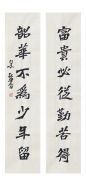 富貴必從勤苦得
韶華不爲少年留